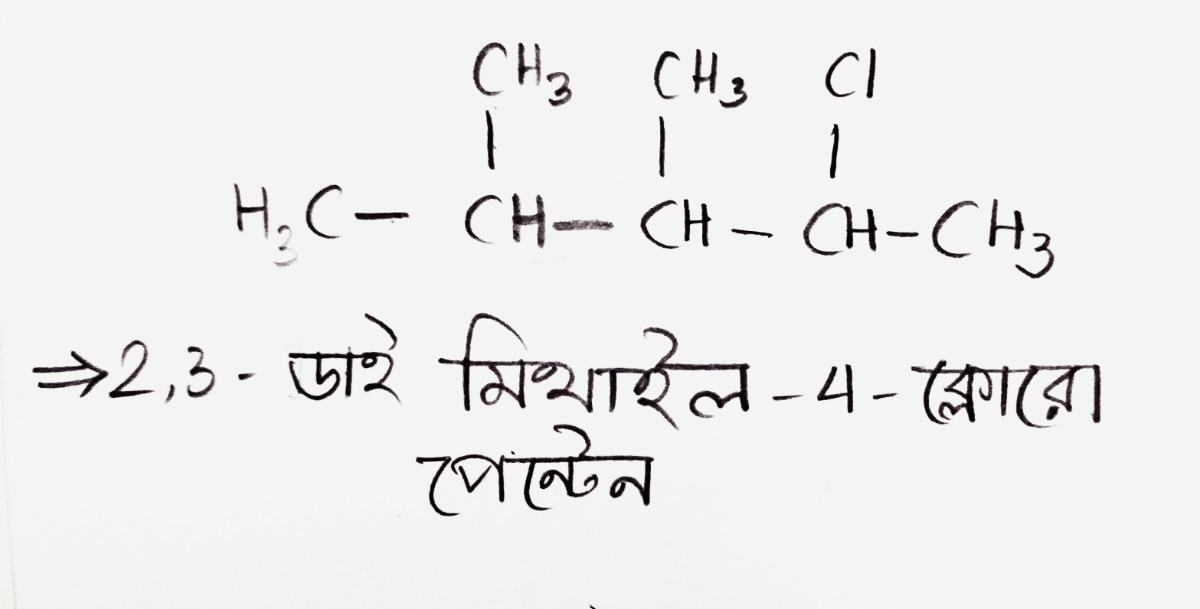 CH₃ CH₃ Cl
| | |
H₃C— CH— CH – CH–CH₃
⇒2,3- ডাই মিথাইল -4- ক্লোরো
পেন্টেন